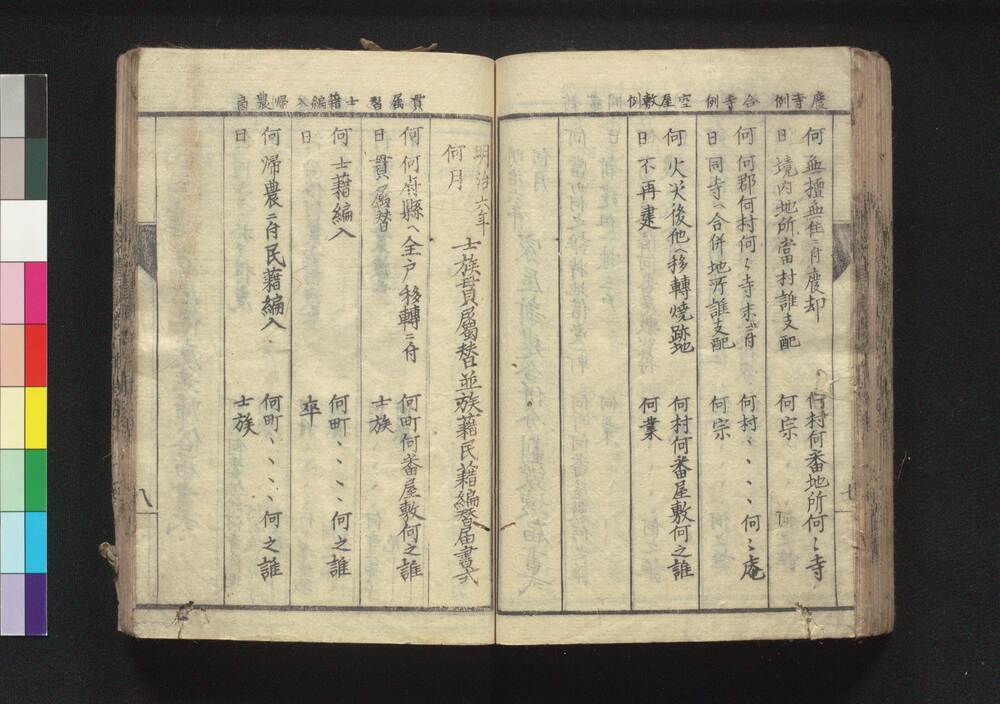 廢寺例
合寺例
空屋敷例
何 無檀無住ニ付廢却 何村何番地所何々寺
日 境内地所當村誰支配 何宗
何 何郡何村何々寺末ニ付 何村、、、何々庵
日 同寺ヘ合併地所誰支配 何宗
何 火災後他ヘ移轉焼跡 何村何番屋敷何之誰
日 不再建 何業
七
貫属替
士籍編入
帰農商
明治六年
何月
士族貫属替並族籍民籍編替届書式
何 何府縣ヘ全戸移轉ニ付 何町何番屋敷何之誰
日 貫属替 士族
何 士籍編入 何町、、、、何之誰
日 卒
何 帰農ニ付民籍編入 何町、、、、何之誰
日 士族
八